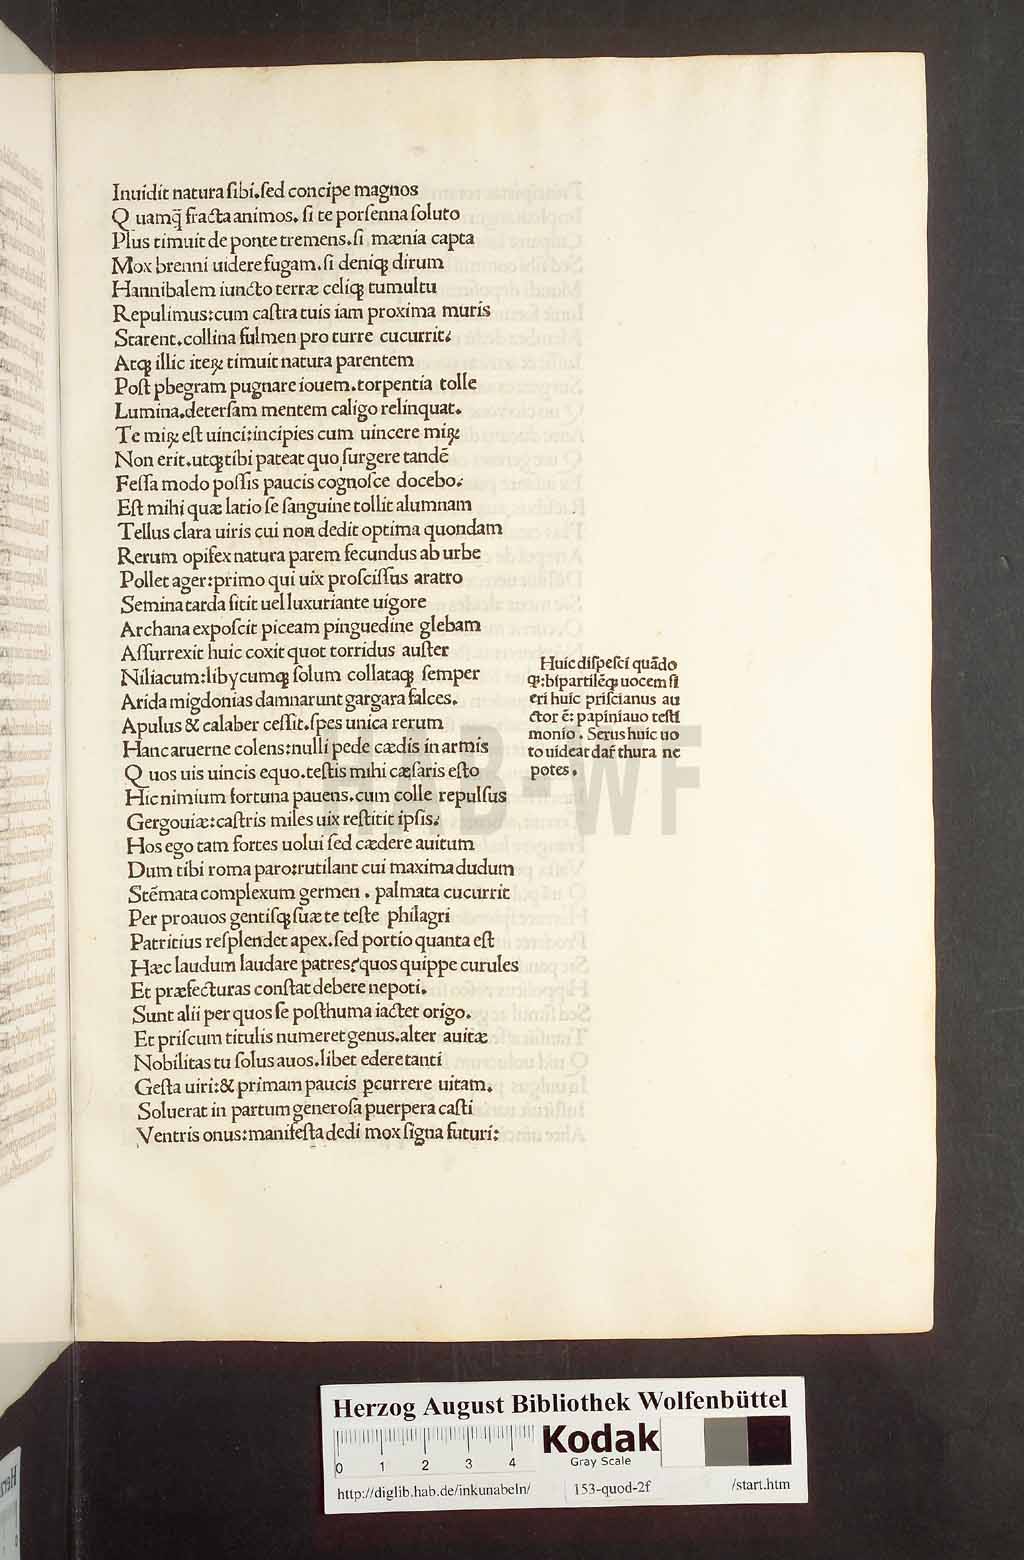 Inuidit natura ſibi.ſed concipe magnos
Q uamq̃ fracta animos. ſi te porſenna ſoluto
Plus timuit de ponte tremens.ſi mænia capta
Mox brenni uidere fugam.ſi deniqꝫ dirum
Hannibalem iuncto terræ celiqꝫ tumultu
Repulimus:cum caſtra tuis iam proxima muris
Starent.collina fulmen pro turre cucurrit:
Atqꝫ illic iteꝝ timuit natura parentem
Poſt phegram pugnare iouem.torpentia tolle
Lumina.deterſam mentem caligo relinquat.
Te miꝝ eſt uinci:incipies cum uincere miꝝ
Non erit.utqꝫ tibi pateat quo ſurgere tandē
Feſſa modo poſſis paucis cognoſce docebo:
Eſt mihi quæ latio ſe ſanguine tollit alumnam
Tellus clara uiris cui non dedit optima quondam
Rerum opifex natura parem fecundus ab urbe
Pollet ager:primo qui uix proſciſſus aratro
Semina tarda ſitit uel luxuriante uigore
Archana expoſcit piceam pinguedine glebam
Aſſurrexit huic coxit quot torridus auſter
Niliacum:libycumqꝫ ſolum collataqꝫ ſemper
Arida migdonias damnarunt gargara falces.
Apulus & calaber ceſſit.ſpes unica rerum
Hanc aruerne colens:nulli pede cædis in armis
Q uos uis uincis equo.teſtis mihi cæſaris eſto
Hic nimium fortuna pauens.cum colle repulſus
Gergouiæ:caſtris miles uix reſtitit ipſis:
Hos ego tam fortes uolui ſed cædere auitum
Dum tibi roma paro:rutilant cui maxima dudum
Stēmata complexum germen . palmata cucurrit
Per proauos gentiſqꝫ ſuæ te teſte philagri
Patritius reſplendet apex.ſed portio quanta eſt
Hæc laudum laudare patres?quos quippe curules
Et præfecturas conſtat debere nepoti.
Sunt alii per quos ſe poſthuma iactet origo.
Et priſcum titulis numeret genus.alter auitæ
Nobilitas tu ſolus auos.libet edere tanti
Geſta uiri:& primam paucis ꝑcurrere uitam.
Soluerat in partum generoſa puerpera caſti
Ventris onus:manifeſta dedi mox ſigna futuri:
Huic diſpeſci quādo
qꝫ:bipartilēqꝫ uocem fi
eri huic priſcianus au
ctor ē: papiniauo teſti
monio . Serus huic uo
to uideat dar̃ thura ne
potes.
HAB-WF
Herzog August Bibliothek Wolfenbüttel
0 1 2 3 4
Kodak
Gray Scale
http://diglib.hab.de/inkunabeln/ 153-quod-2f /start.htm